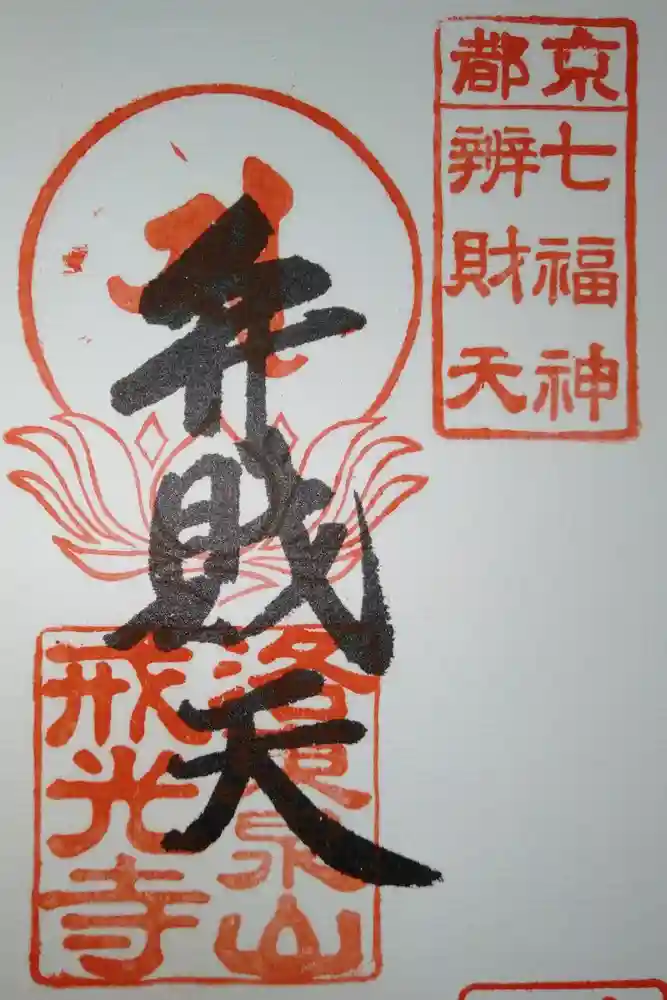 京都
七福神
辨財天
弁財天
洛泉山
戒光寺